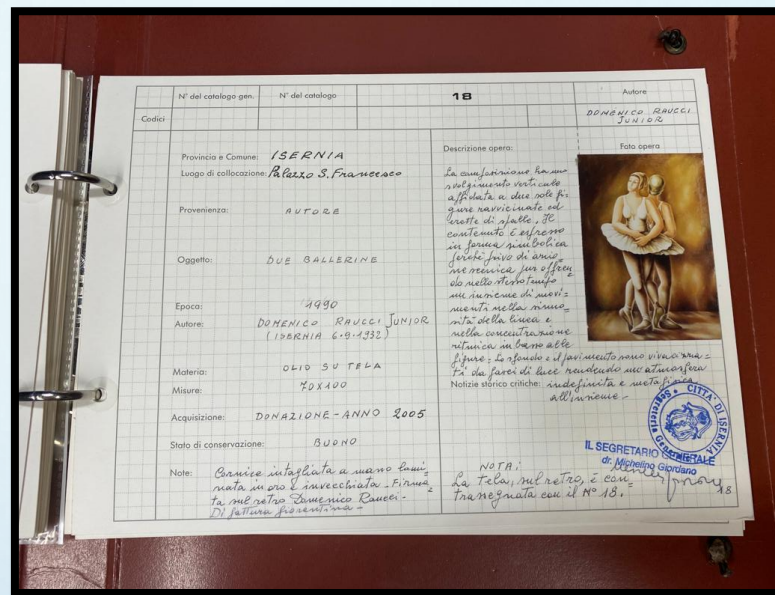 N° del catalogo gen.
N° del catalogo
18
Autore
Codici
DOMENICO RAUCCI
JUNIOR
Provincia e Comune: ISERNIA
Luogo di collocazione: Palazzo S. Francesco
Provenienza: AUTORE
Oggetto: DUE BALLERINE
Epoca: 1990
Autore: DOMENICO RAUCCI JUNIOR
(ISERNIA 6-9-1932)
Materia: OLIO SU TELA
Misure: 70X100
Acquisizione: DONAZIONE - ANNO 2005
Stato di conservazione: BUONO
Note: Cornice intagliata a mano lami=
nata in oro e invecchiata - Firma=
ta sul retro Domenico Raucci -
Di fattura fiorentina -
Descrizione opera:
Foto opera
La composizione ha uno
svolgimento verticale
affidata a due sole fi=
gure ravvicinate ed
erette di spalle. Il
contenuto è espresso
in forma simbolica
perché privo di azio=
ne scenica pur offren
do nello stesso tempo
un insieme di movi=
menti nella sinuo=
sità della linea e
nella concentrazione
ritmica in basso alle
figure: Lo sfondo e il pavimento sono vivacizza=
ti da fasci di luce rendendo un'atmosfera
Notizie storico critiche: indefinita e metafisica
all'insieme -
CITTA' DI ISERNIA
Segreteria Generale
IL SEGRETARIO GENERALE
dr. Michelino Giordano
NOTA:
La Tela, sul retro, è con
trassegnata con il N° 18.
18